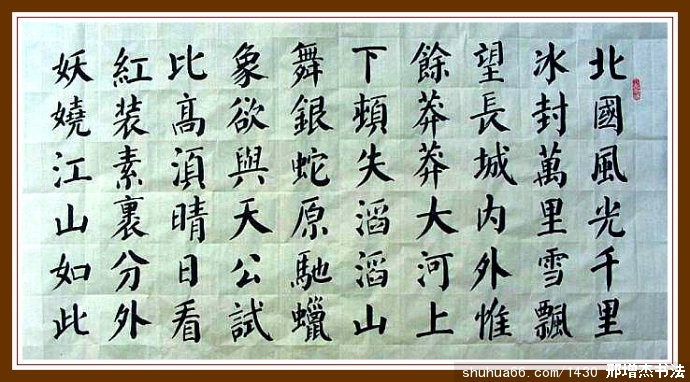 北國風光千里
冰封萬里雪飄
望長城内外惟
餘莽莽大河上
下頓失滔滔山
舞銀蛇原馳蠟
象欲與天公試
比高湏晴日看
紅装素裹分外
妖嬈江山如此
shuhua66.com/1430 邢增杰书法